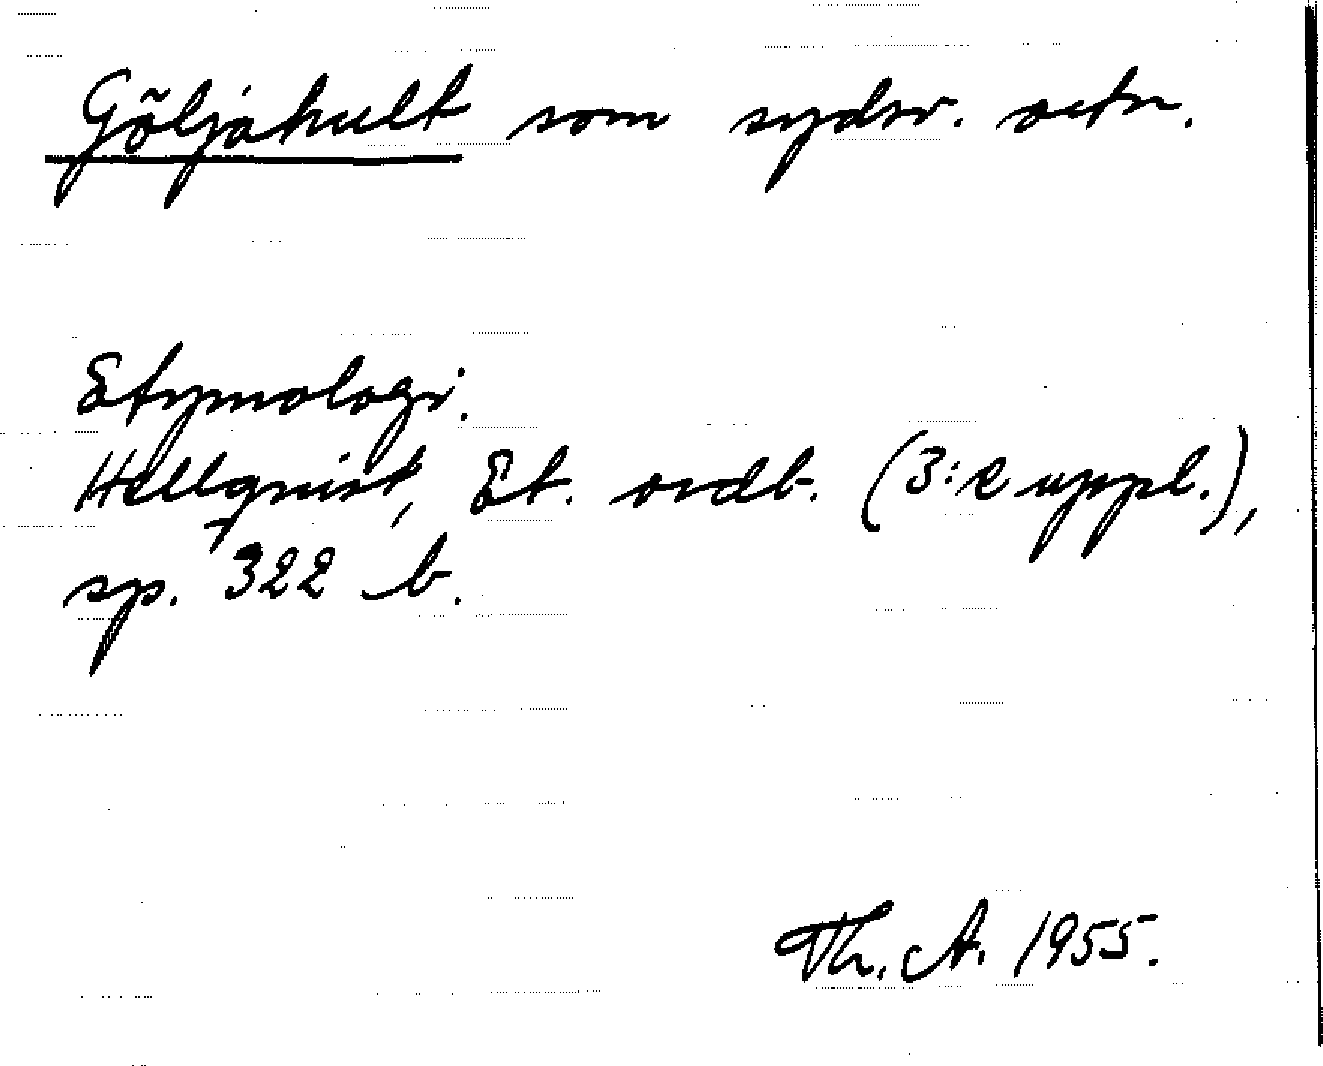 Göljahult som sydsv. ortn.
Etymologi.
Hellquist, Et. ordb. (3:e uppl.),
sp. 322 b.
Th. A. 1955.